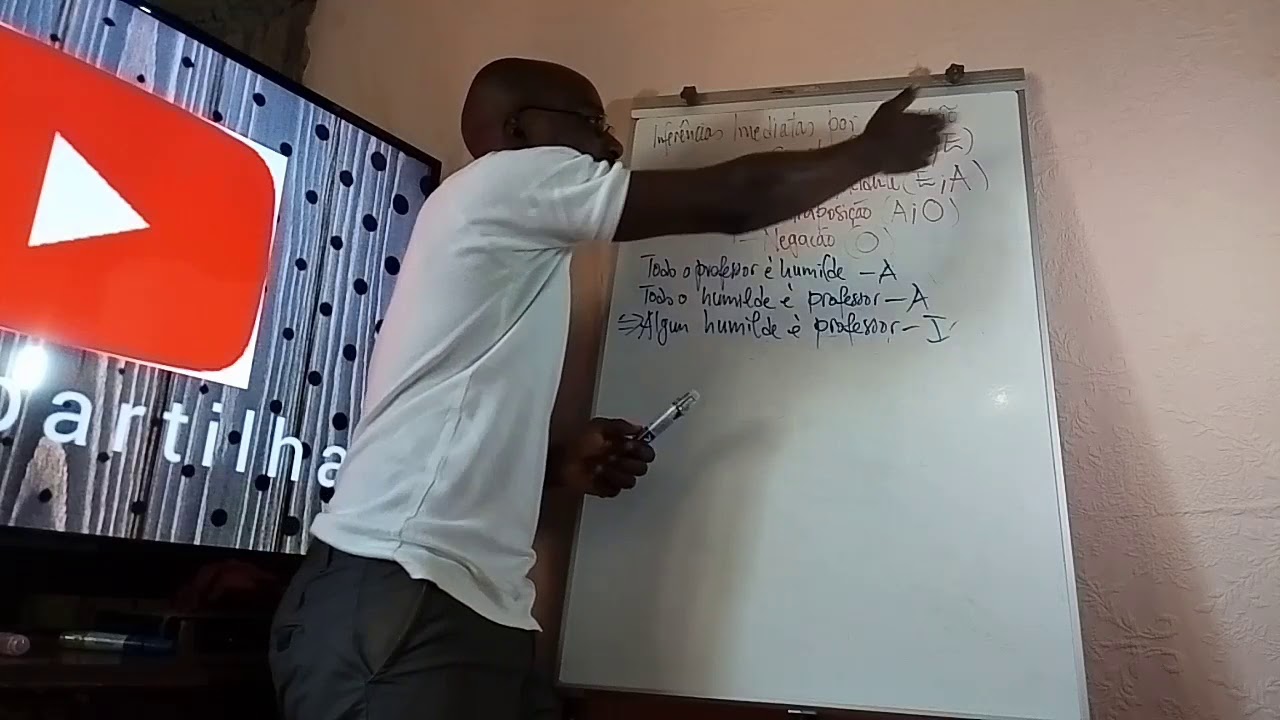 partilha
Inferências Imediatas por
E)
(E,A)
(A,O)
Negação (O)
Todo o professor é humilde - A
Todo o humilde é professor - A
⇒ Algum humilde é professor - I